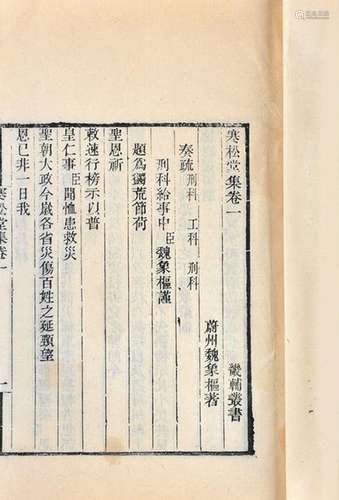 寒松堂集卷一　畿輔叢書
蔚州魏象樞著
奏疏 刑科 工科 刑科
刑科給事中臣魏象樞謹
題爲蠲荒節荷
聖恩祈
敕速行榜示以普
皇仁事臣聞恤患救災
聖朝大政今歲各省災傷百姓之延頸望
恩已非一日我
寒松堂集卷一　一